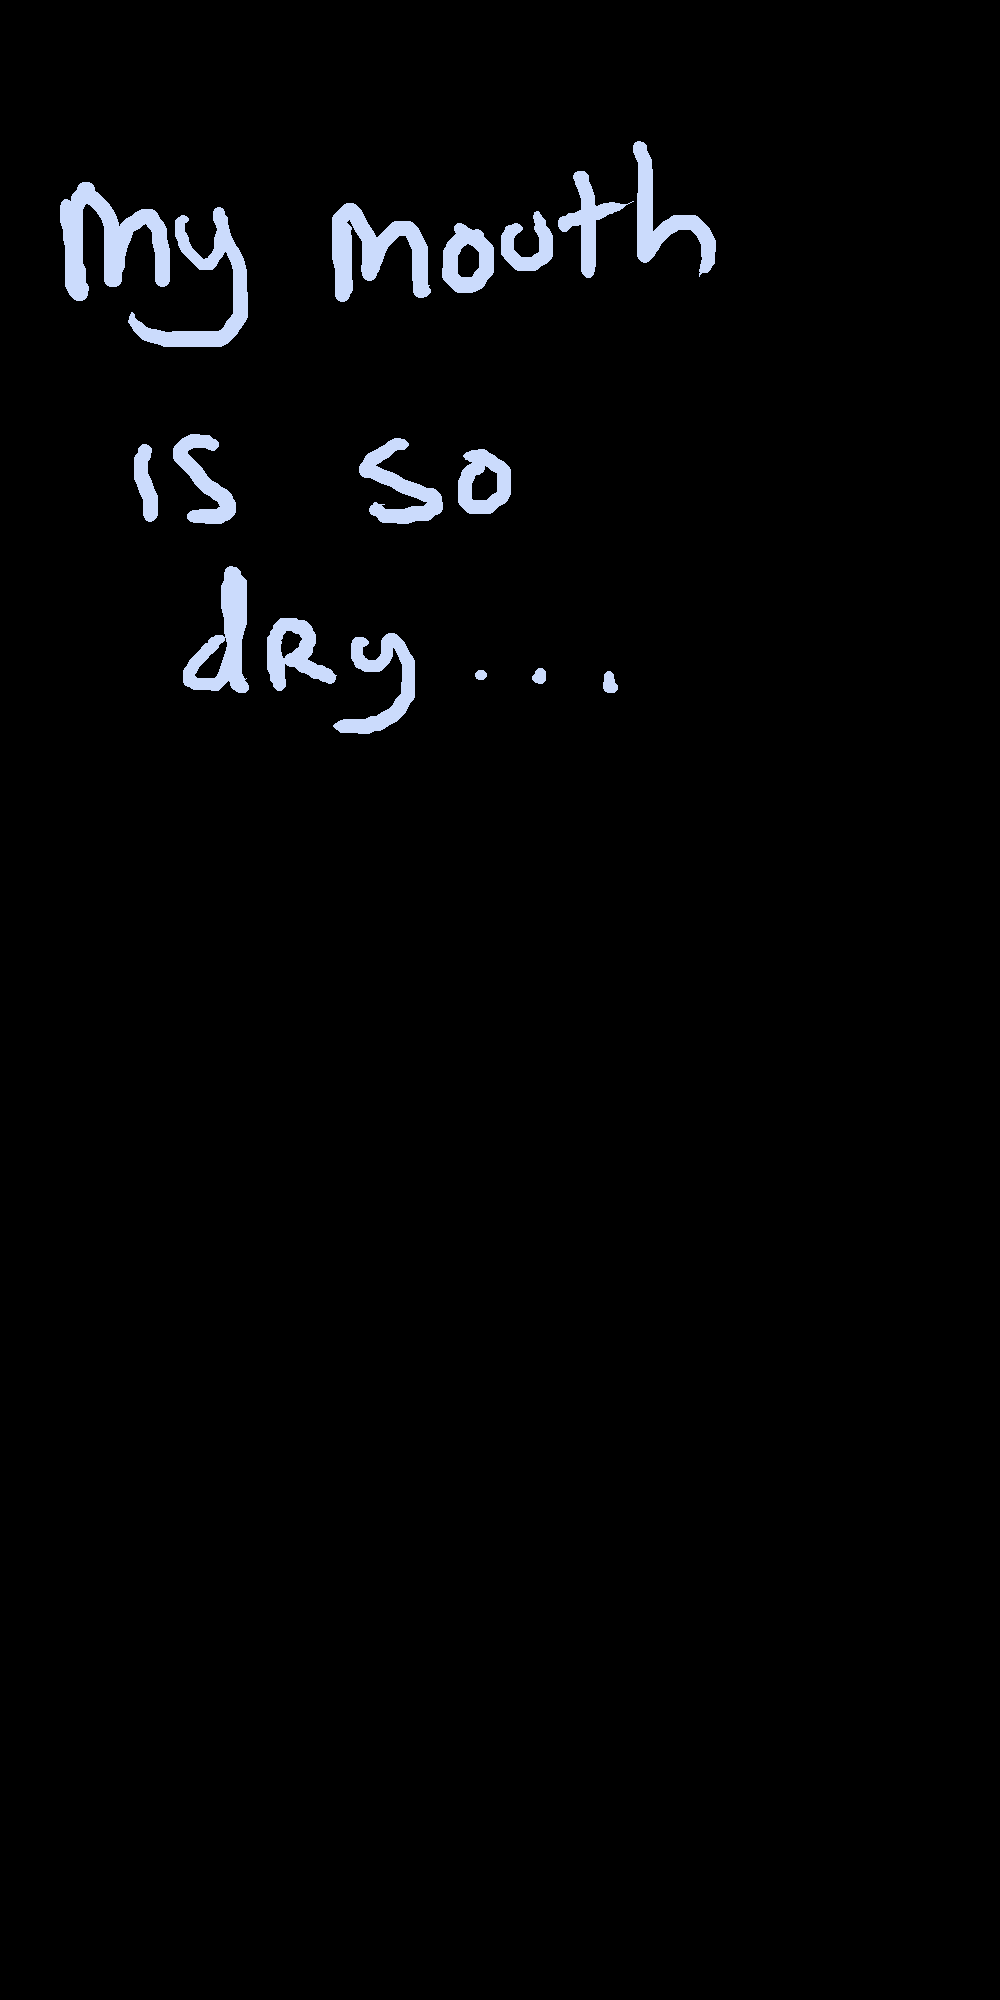 my mouth
is so
dRy...